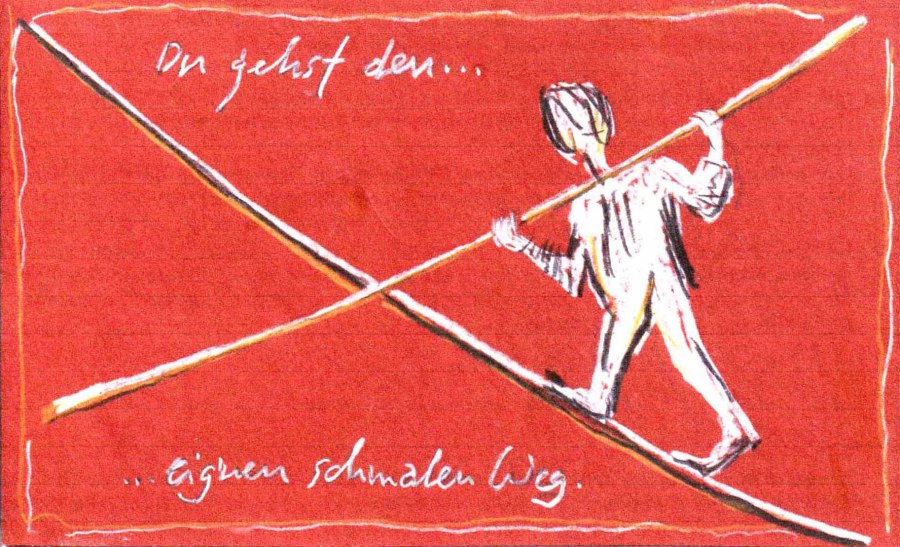 Du gehst den...
...eignen schmalen Weg.